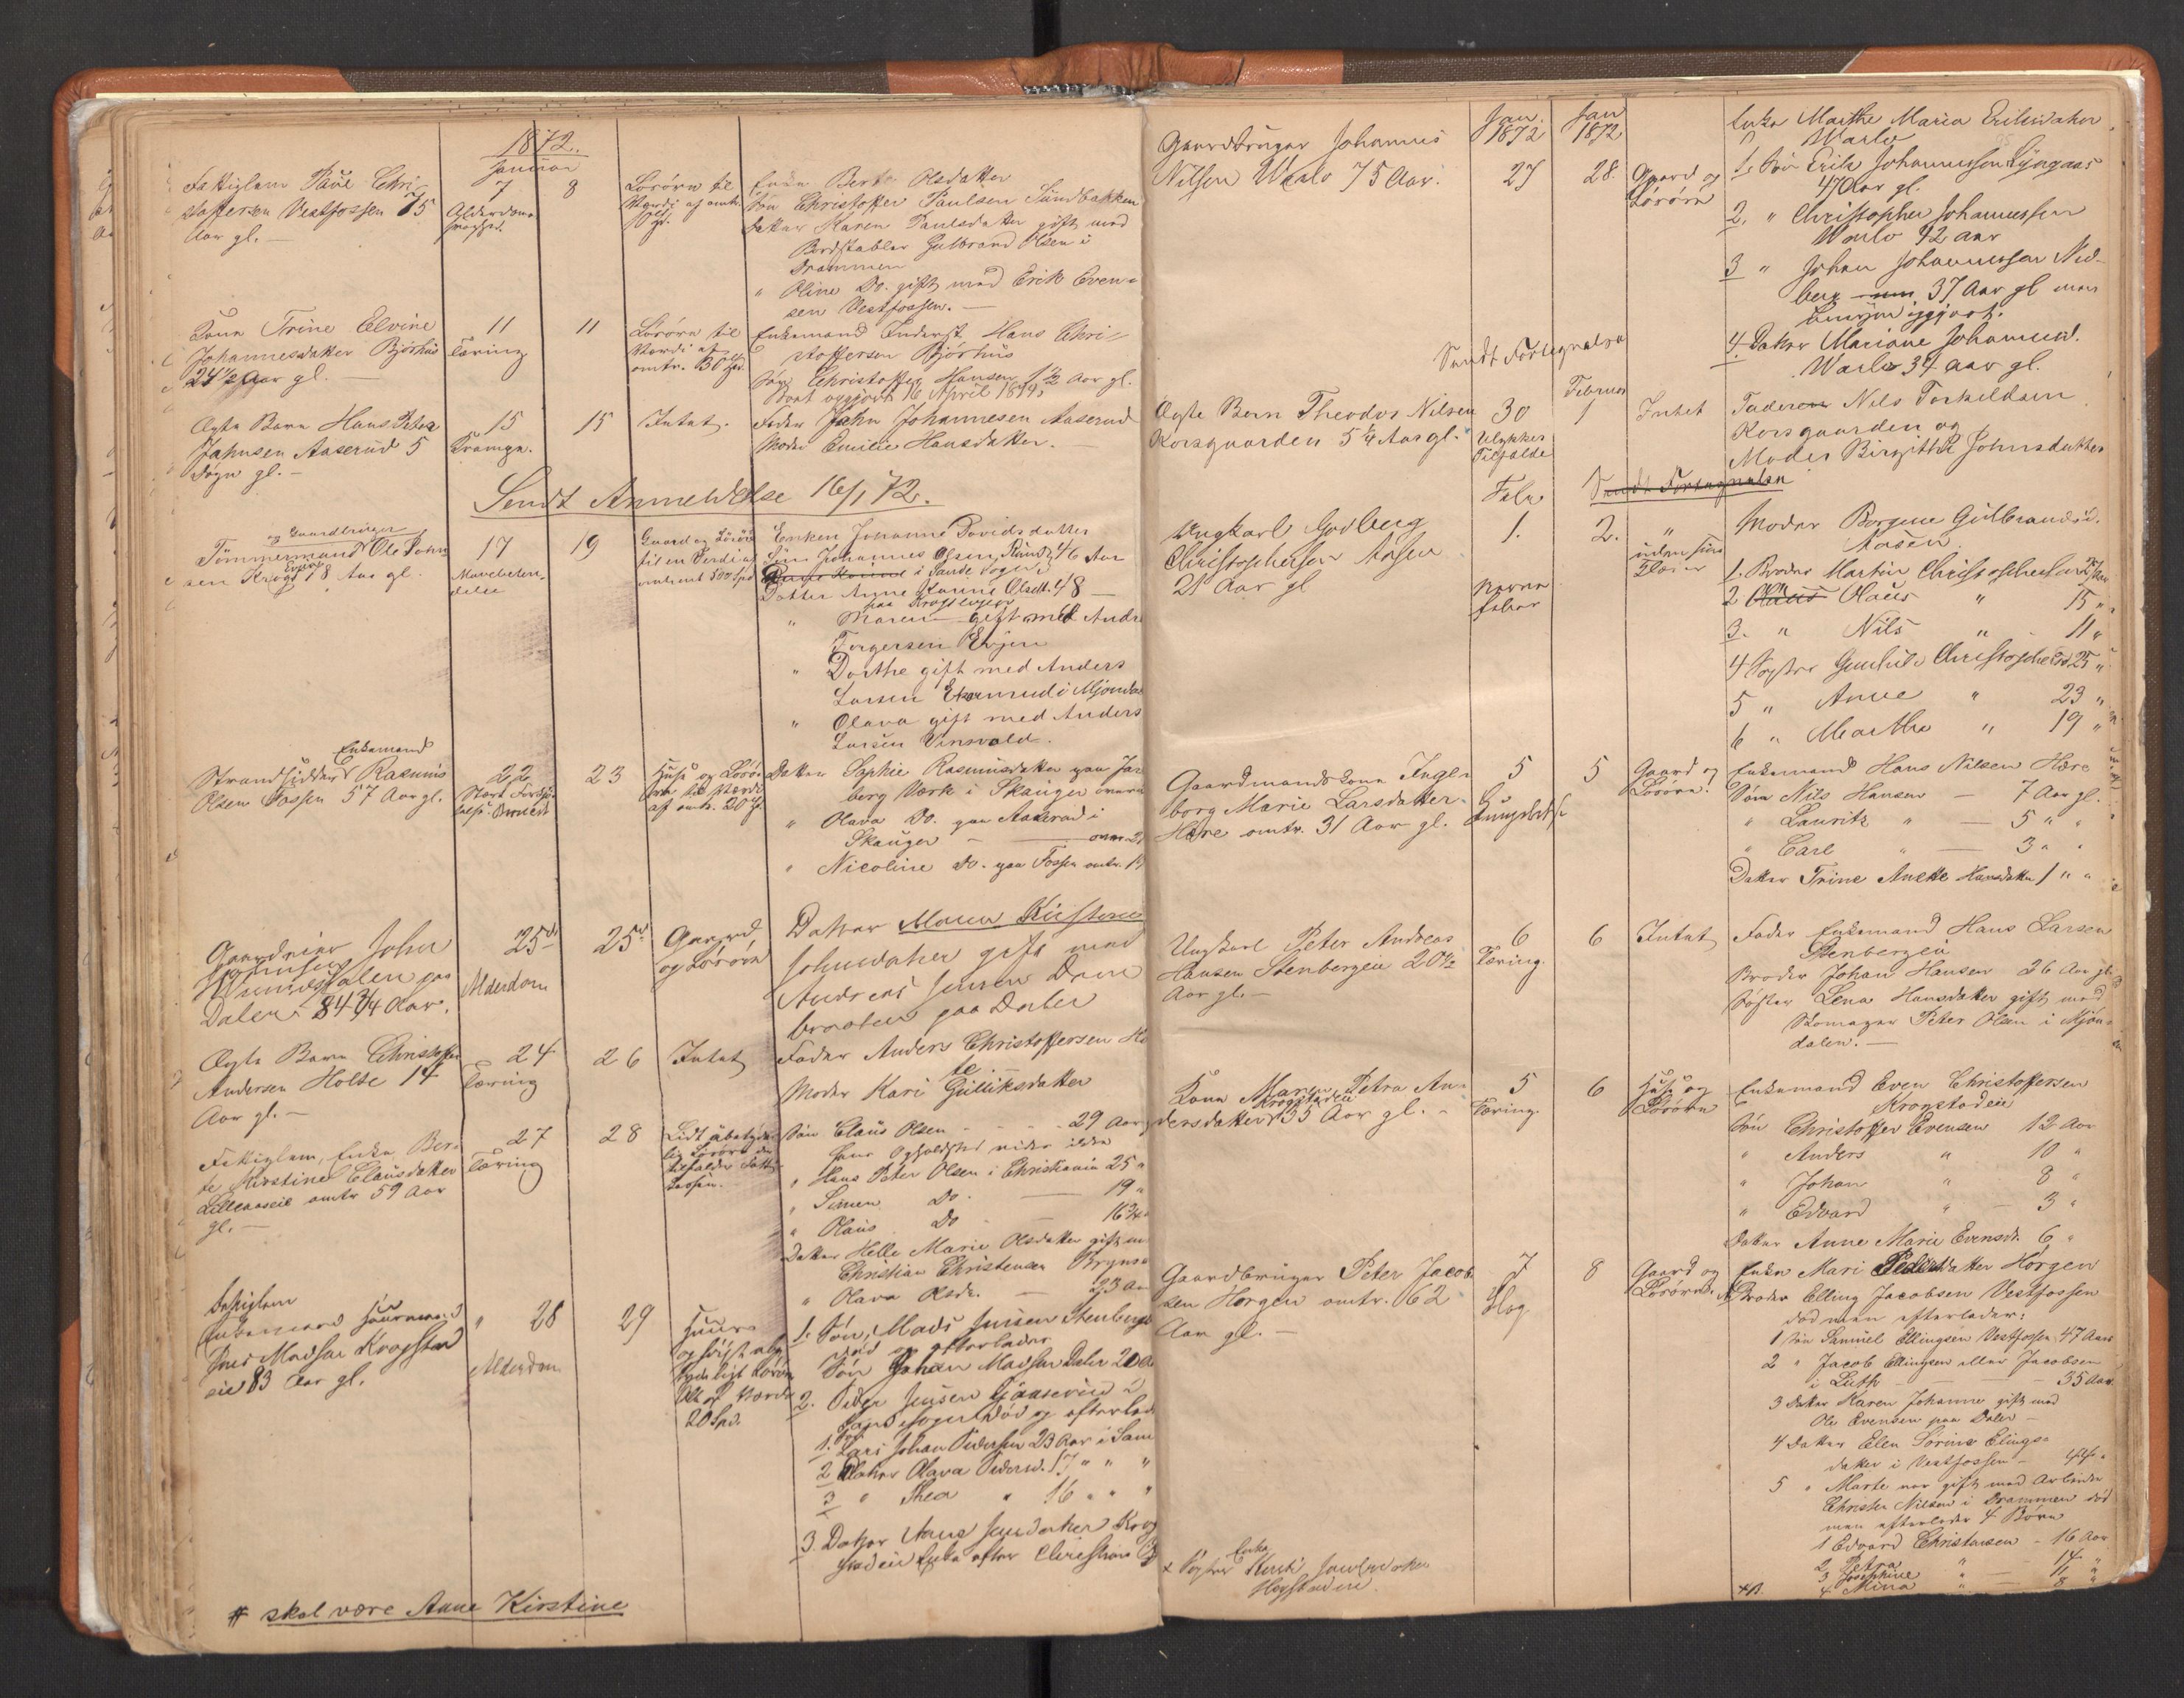 1872.
Januar
Fattiglem Paul Chri-
stoffersen Vestfossen 75
Aar gl. —
7
Alderdoms
8
Løsøre til
Værdi af omtr.
Enke Berte Olsdatter
Søn Christoffer Paulsen Sundbakken
Datter Karen Paulsdatter gift med
Bordstabler Gulbrand Olsen i
Drammen
" Oline Do. gift med Erik Even-
sen Vestfossen. —
Kone Trine Elvine
Johannesdatter Bjørhus
24 1/2 Aar gl. —
11
Tæring
11
Løsøre til
Værdi af
omtr. 30 Spd.
Enkemand Inderst Hans Chri-
stoffersen Bjørhus
Søn Christoffer Hansen 1 1/2 Aar gl.
Boet opgjort 16 April 1899
Ægte Barn Hans Peter
Jahnsen Aaserud 5
Døgn gl. —
15
Krampe.
15
Intet.
Fader Jahn Johannesen Aaserud
Moder Emilie Hansdatter.
Sendt Anmeldelse 16/1 72.
og Gaardbruger
Tømmermand Ole John
sen Krogs 78 Aar gl.
17
Mavebeten-
delse
19
Gaard og Løsøre
til en Verdi af
omtrent 500 Spd
Enken Johanne Davidsdatter
Søn Johannes Olsen Rund 46 Aar
i Sande Sogn
Datter Anne Hanne Olsdt. 48 —
" Maren gift med Andr
Torgersen Evjen
" Dorthe gift med Anders
Larsen i Mjønda
" Olava gift med Anders
Larsen Vinsvold.
Enkemand
Strandsidder Rasmus
Olsen Fossen 57 Aar gl.
22
23
Huse og Løsø-
re til Værdi
af omtr. 20
Datter Sophie Rasmusdatter paa Jar
berg Værk i Skauger
" Olava Do. paa Aaserud i
Skauger —
" Nicoline Do. paa Fossen omtr.
Gaardeier John
Dalen paa
Daler 84 3/4 Aar.
25
Alderdom
25
Gaard
og Løsøre
Datter Maren Kirstine
Johnsdatter gift med
Andreas Jensen Dam
braaten paa Daler
Ægte Barn Christoffer
Andersen Holte 14
Aar gl. —
24
Tæring
26
Intet
Fader Anders Christoffersen Ho
te
Moder Kari Gulliksdatter
Fattiglem, Enke Ber-
te Kirstine Clausdatter
Lilleaaseie omtr 59 Aar
gl. —
27
Tæring
28
Lidt ubetyde-
lig Løsøre der
tilfalder Fattig
kassen.
Søn Claus Olsen - - - 29 Aar
hans Opholdsted vides ikke
" Hans Peter Olsen i Christiania 25 "
" Simen Do. — 19 "
" Olaus Do — 16 3/4
Datter Helle Marie Olsdatter gift m
Christian Christensen Bryns
" Olava Olsdr. — 23 Aar
Fattiglem
Enkemand Huusmand
Jens Madsen Krogstad
eie 83 Aar gl.
" 28
Alderdom
29
Huus
20 Spd.
1. Søn, Mads Jensen Stenberg
død og efterlader
Søn Johan Madsen Daler 20 A
2. Peder Jensen Gaaserud i
Sande Sogn død og efterlad
Søn
1. Lars Johan Pedersen 23 Aar i San
2 Datter Olava Pedersd. 17 " " "
3 " Thea " 16 " " "
3. Datter Anne Jensdatter Krog
stadeie Enke efter Christian
# skal være Anne Kirstine
Gaardbruger Johannes
Nilsen Varlo 75 Aar.
Jan.
1872
27
Jan
1872
28.
Gaard og
Løsøre
Enke Marthe Maria Eriksdatter
Varlo
1. Søn Erik Johannessen Lyngaas
47 Aar gl.
2. " Christopher Johannessen
Varlo 42 aar
3 " Johan Johannessen Ned-
berg 37 Aar gl men
4. Datter Mariane Johannesd.
Varlo 34 aar gl.
Sendt Fortegnelse
Ægte Barn Theodor Nilsen
Korsgaarden 5 1/4 Aar gl.
30
Ulykkes
Tilfælde
Februar
1
Intet
Faderen Nils Torkildsen
Korsgaarden og
Moder Birgitte Johnsdatter
Sendt Fortegnelse
Ungkarl Godberg
Christophersen Aasen
21 Aar gl
Febr.
1.
Nerve
feber
2.
"
Moder Borgine Gulbrandsd.
Aasen.
1. Broder Martin Christophersen
2 Olaus " 15 "
3. " Nils " 11 "
4 Søster Gunhild Christophersd 25 "
5 " Anne " 23 "
6 " Marthe " 19 "
Gaardmandskone Inge-
borg Marie Larsdatter
Hære omtr. 31 Aar gl.
5
5
Gaard og
Løsøre.
Enkemand Hans Nilsen Hære
Søn Nils Hansen — 7 Aar gl.
" Lauritz " — 5 " "
" Carl " — 3 " "
Datter Trine Anette Hansdatter 1 " "
Ungkarl Peter Andreas
Hansen Stenbergeie 20 1/2
Aar gl. —
6
Tæring.
6
Intet
Fader Enkemand Hans Larsen
Stenbergeie
Broder Johan Hansen 26 Aar gl.
Søster Lena Hansdatter gift med
Skomager Peter Olsen i Mjøn-
dalen. —
Kone Maren Petra An-
Krogstadeie
dersdatter 35 Aar gl. -
5
Tæring.
6
Huse og
Løsøre
Enkemand Even Christoffersen
Krogstadeie
Søn Christoffer Evensen 12 Aar
" Anders " 10 "
" Johan " 8 "
" Edvard " — 3 "
Datter Anne Marie Evensdr. 6 "
Gaardbruger Peter Jacob-
sen Horgen omtr. 62
Aar gl. —
7
Slag
8
Gaard og
Løsøre.
Enke Mari Pedersdatter Horgen
Broder Elling Jacobsen Vestfossen
død men efterlader:
1 Søn Samuel Ellingsen Vestfossen 47 Aar
2 " Jacob Ellingsen eller Jacobsen
35 Aar
3 Datter Karen Johanne gift med
Ole Evensen paa Daler —
4 Datter Elen Sørine Elings-
datter i Vestfossen —
5 " Marte var gift med Arbeider
Christen Nilsen i Drammen død
men efterlader 4 Børn
1 Edvard Christensen - 16 Aar
2 Petra " — 14 "
3 Josephine " — 11 "
4 Mina " — 8 "
Enke
x Søster Kirsti Jacobsdatter